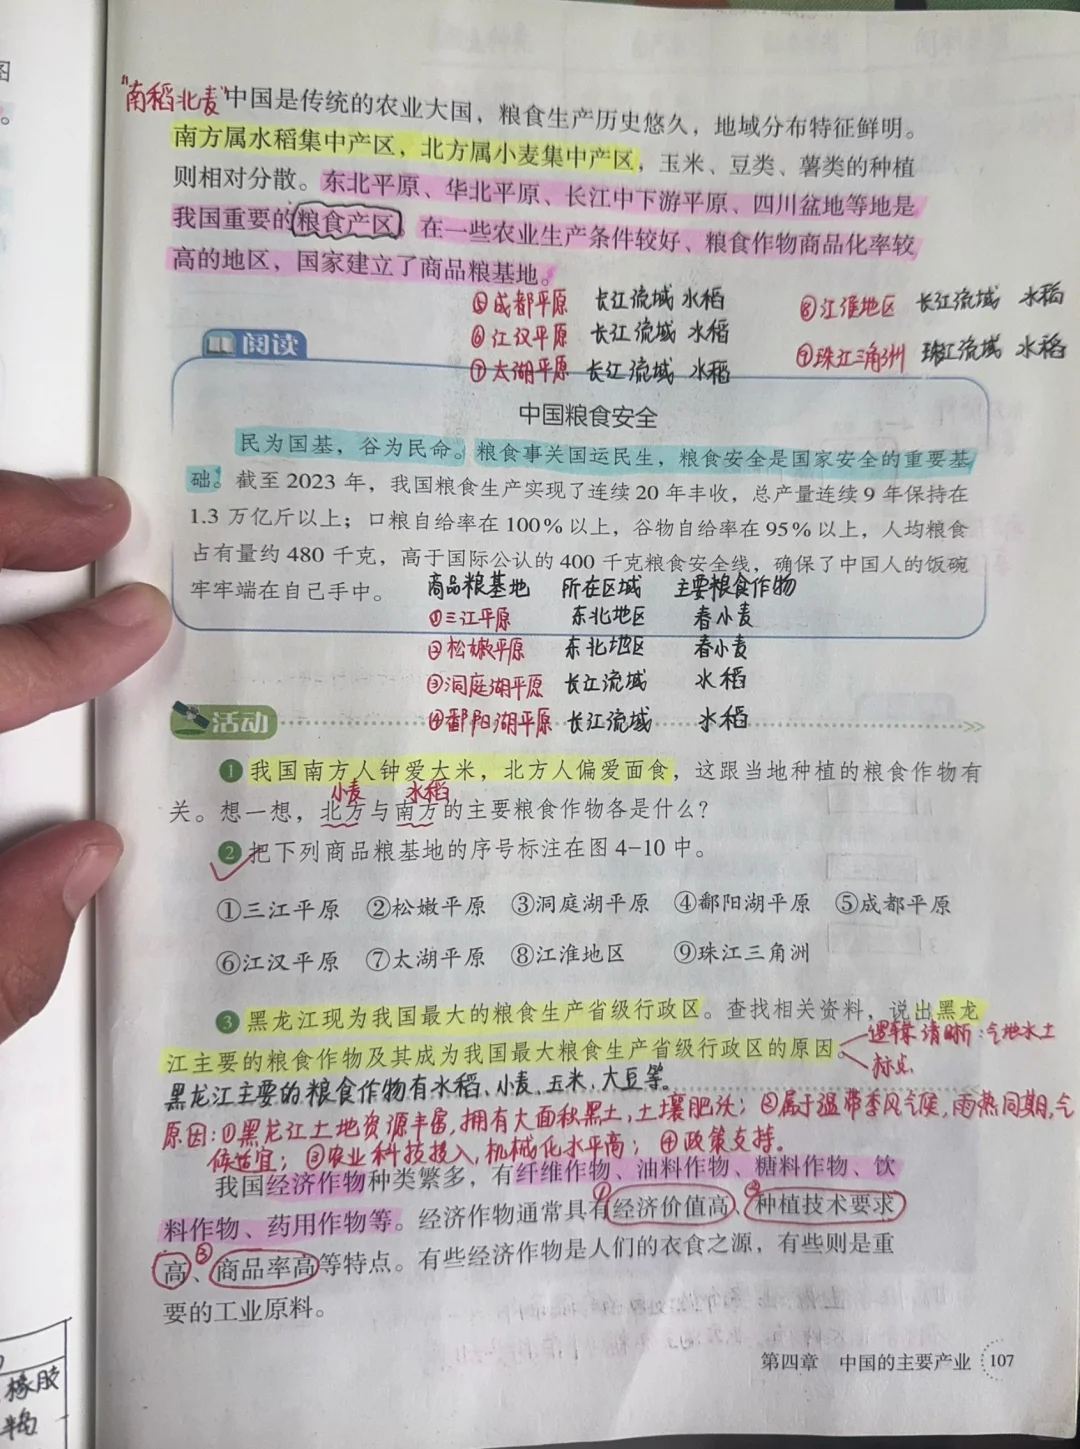 图
。
"南稻北麦"中国是传统的农业大国，粮食生产历史悠久，地域分布特征鲜明。
南方属水稻集中产区，北方属小麦集中产区，玉米、豆类、薯类的种植
则相对分散。东北平原、华北平原、长江中下游平原、四川盆地等地是
我国重要的粮食产区。在一些农业生产条件较好、粮食作物商品化率较
高的地区，国家建立了商品粮基地。
⑤成都平原 长江流域 水稻 ⑧江淮地区 长江流域 水稻
⑥江汉平原 长江流域 水稻
⑦太湖平原 长江流域 水稻 ⑨珠江三角洲 珠江流域 水稻
阅读
中国粮食安全
民为国基，谷为民命。粮食事关国运民生，粮食安全是国家安全的重要基
础。截至 2023 年，我国粮食生产实现了连续 20 年丰收，总产量连续 9 年保持在
1.3 万亿斤以上；口粮自给率在 100% 以上，谷物自给率在 95% 以上，人均粮食
占有量约 480 千克，高于国际公认的 400 千克粮食安全线，确保了中国人的饭碗
牢牢端在自己手中。
商品粮基地 所在区域 主要粮食作物
①三江平原 东北地区 春小麦
②松嫩平原 东北地区 春小麦
③洞庭湖平原 长江流域 水稻
④鄱阳湖平原 长江流域 水稻
活动
1 我国南方人钟爱大米，北方人偏爱面食，这跟当地种植的粮食作物有
小麦 水稻
关。想一想，北方与南方的主要粮食作物各是什么？
2 把下列商品粮基地的序号标注在图 4-10 中。
①三江平原 ②松嫩平原 ③洞庭湖平原 ④鄱阳湖平原 ⑤成都平原
⑥江汉平原 ⑦太湖平原 ⑧江淮地区 ⑨珠江三角洲
3 黑龙江现为我国最大的粮食生产省级行政区。查找相关资料，说出黑龙
江主要的粮食作物及其成为我国最大粮食生产省级行政区的原因。
逻辑清晰：气地水土
标点
黑龙江主要的粮食作物有水稻、小麦、玉米、大豆等。
原因：①黑龙江土地资源丰富，拥有大面积黑土，土壤肥沃；②属于温带季风气候，雨热同期，气
候适宜；③农业科技投入，机械化水平高；④政策支持。
我国经济作物种类繁多，有纤维作物、油料作物、糖料作物、饮
料作物、药用作物等。经济作物通常具有①经济价值高、②种植技术要求
高、③商品率高等特点。有些经济作物是人们的衣食之源，有些则是重
要的工业原料。
第四章 中国的主要产业 107
橡胶